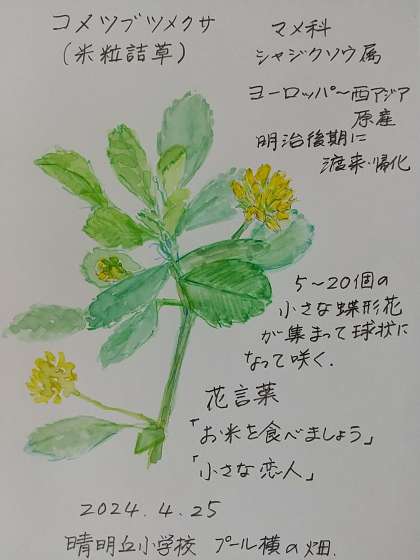 コメツブツメクサ
(米粒詰草)
マメ科
シャジクソウ属
ヨーロッパ〜西アジア
原産
明治後期に
渡来・帰化
5〜20個の
小さな蝶形花
が集まって球状に
なって咲く.
花言葉
「お米を食べましょう」
「小さな恋人」
2024.4.25
晴明丘小学校 プール横の畑.